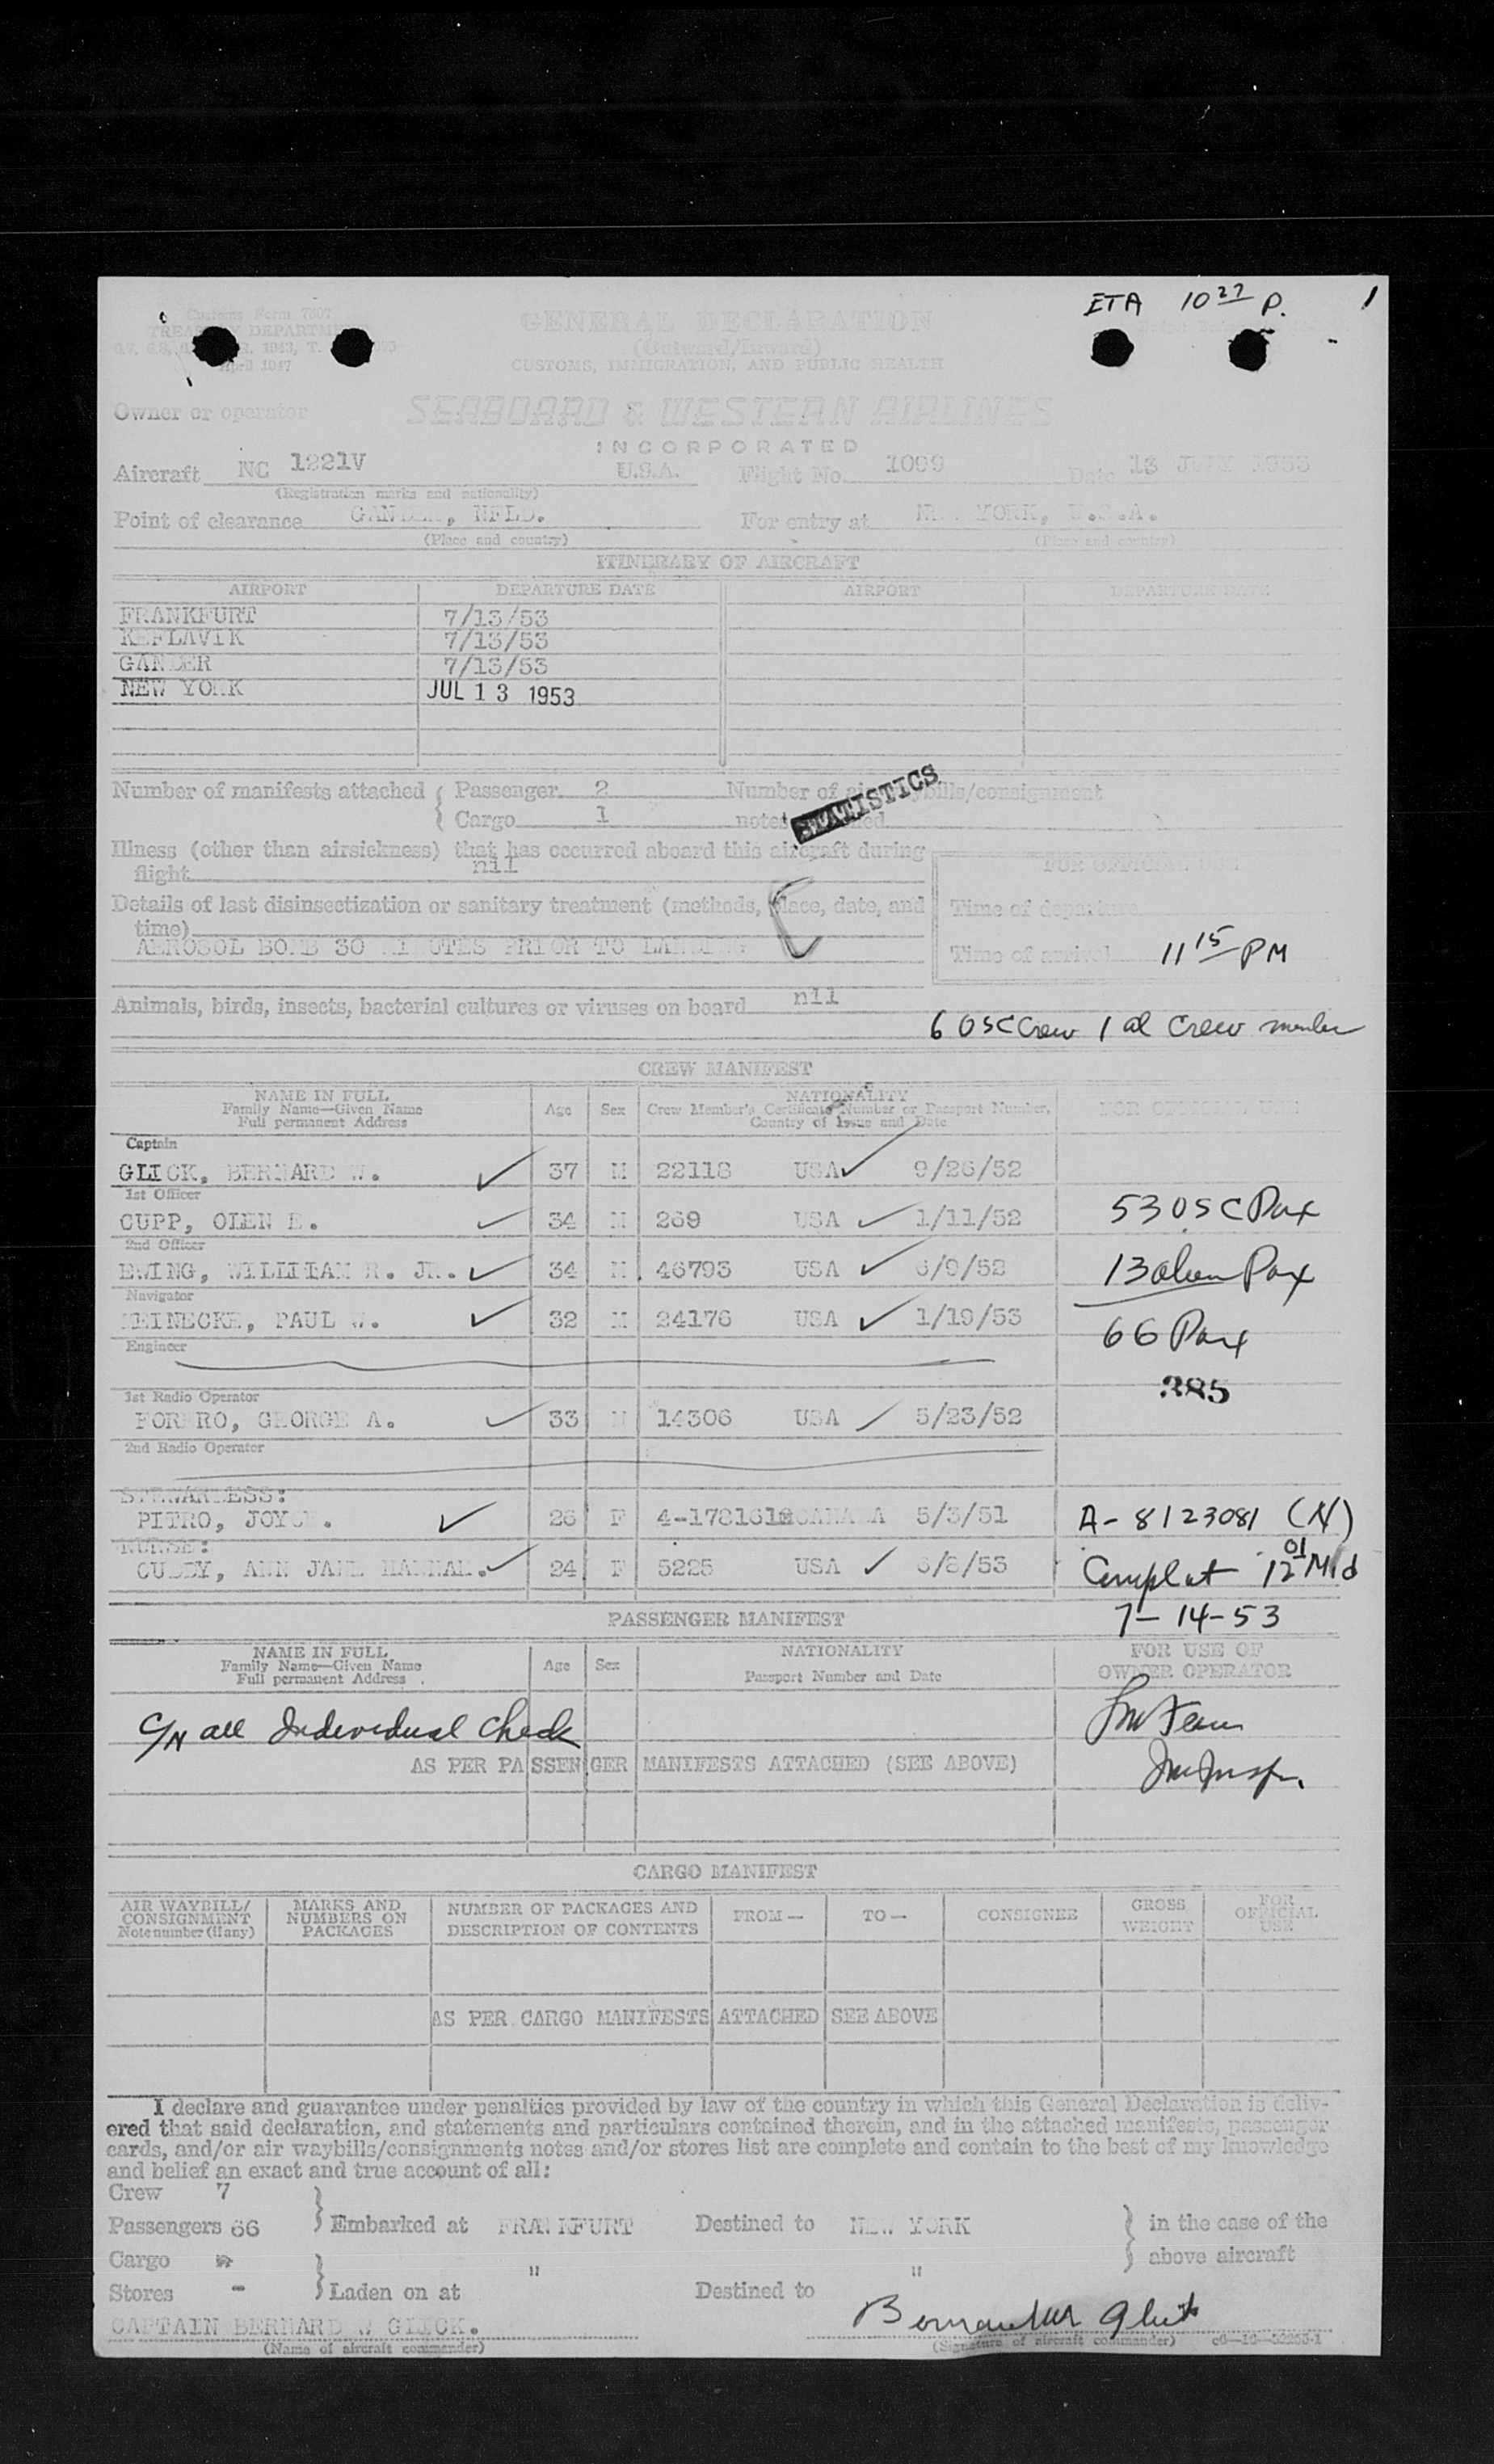 ETA 10 27 P. 1
Customs Form 7507
TREASURY DEPARTMENT
April 1947
GENERAL DECLARATION
(Outward/Inward)
CUSTOMS, IMMIGRATION, AND PUBLIC HEALTH
Owner or operator SEABOARD & WESTERN AIRLINES
INCORPORATED
Aircraft NC 1221V U.S.A. Flight No. 1099 Date 13 JULY 1953
(Registration marks and nationality)
Point of clearance GANDER, NFLD. For entry at NEW YORK, U.S.A.
(Place and country) (Place and country)
ITINERARY OF AIRCRAFT
AIRPORT DEPARTURE DATE AIRPORT DEPARTURE DATE
FRANKFURT 7/13/53
KEFLAVIK 7/13/53
GANDER 7/13/53
NEW YORK JUL 13 1953
Number of manifests attached { Passenger 2 Number of air waybills/consignment
Cargo 1 notes attached
STATISTICS
Illness (other than airsickness) that has occurred aboard this aircraft during
flight nil
FOR OFFICIAL USE
Details of last disinsectization or sanitary treatment (methods, place, date, and
time)
Time of departure
AEROSOL BOMB 30 MINUTES PRIOR TO LANDING
Time of arrival 11 15 PM
Animals, birds, insects, bacterial cultures or viruses on board nil
6 OSC Crew 1 al Crew member
CREW MANIFEST
NAME IN FULL Age Sex NATIONALITY FOR OFFICIAL USE
Family Name—Given Name Crew Member's Certificate Number or Passport Number,
Full permanent Address Country of Issue and Date
Captain
GLICK, BERNARD W. 37 M 22118 USA 9/26/52
1st Officer
CUPP, OLEN E. 34 M 269 USA 1/11/52 53 OSC Pax
2nd Officer
EWING, WILLIAM R. JR. 34 M 46793 USA 6/9/52 13 alien Pax
Navigator
MEINECKE, PAUL W. 32 M 24176 USA 1/19/53 66 Pax
Engineer
385
1st Radio Operator
FORERO, GEORGE A. 33 M 14306 USA 5/23/52
2nd Radio Operator
STEWARDESS:
PITRO, JOYCE. 26 F 4-178161 CANADA 5/3/51 A-8123081 (N)
NURSE:
CUDDY, ANN JANE HANNAH. 24 F 5225 USA 6/8/53 Complet 12 01 Mid
7-14-53
PASSENGER MANIFEST
NAME IN FULL Age Sex NATIONALITY FOR USE OF
Family Name—Given Name Passport Number and Date OWNER OPERATOR
Full permanent Address
C/N all Individual Check
AS PER PASSENGER MANIFESTS ATTACHED (SEE ABOVE)
Imm Insp.
CARGO MANIFEST
AIR WAYBILL/ MARKS AND NUMBER OF PACKAGES AND FROM— TO— CONSIGNEE GROSS FOR
CONSIGNMENT NUMBERS ON DESCRIPTION OF CONTENTS WEIGHT OFFICIAL
Note number (if any) PACKAGES USE
AS PER CARGO MANIFESTS ATTACHED SEE ABOVE
I declare and guarantee under penalties provided by law of the country in which this General Declaration is deliv-
ered that said declaration, and statements and particulars contained therein, and in the attached manifests, passenger
cards, and/or air waybills/consignments notes and/or stores list are complete and contain to the best of my knowledge
and belief an exact and true account of all:
Crew 7
Passengers 66 } Embarked at FRANKFURT Destined to NEW YORK } in the case of the
Cargo " " above aircraft
Stores - } Laden on at Destined to
CAPTAIN BERNARD W GLICK. Bernard W Glick
(Name of aircraft commander) (Signature of aircraft commander) c6—16—52253-1